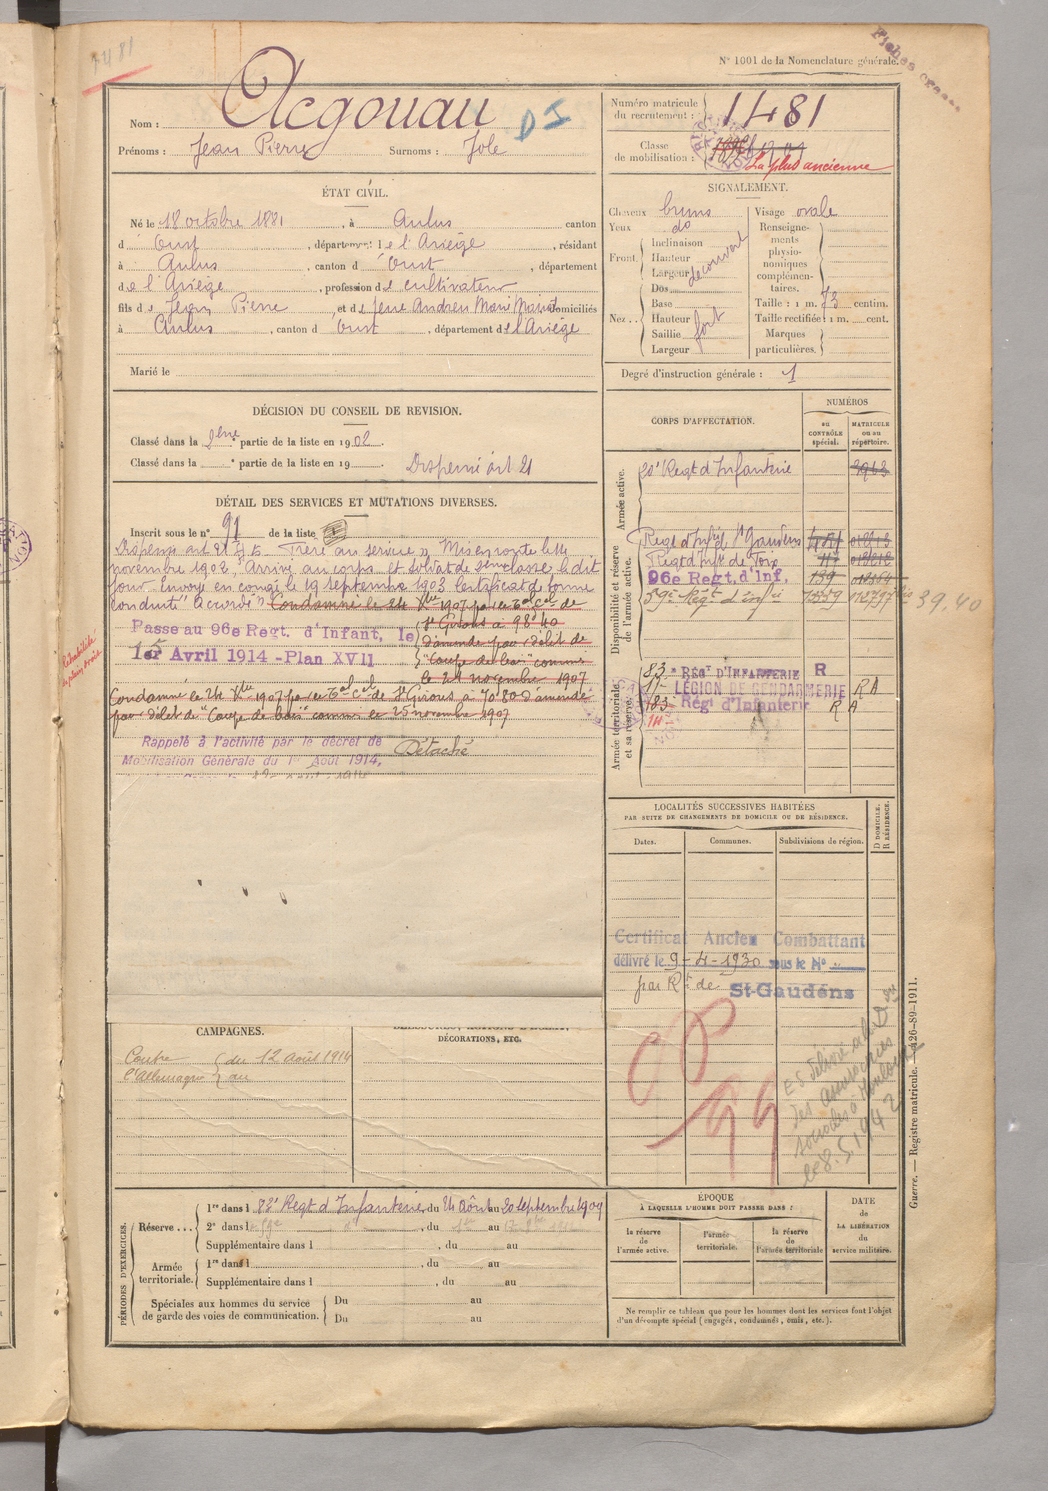 1481
N° 1001 de la Nomenclature générale.
Fiches
Nom : Acgouau
DI
Prénoms : Jean Pierre Surnoms : Jole
Numéro matricule du recrutement : 1481
Classe de mobilisation :
La plus ancienne
ÉTAT CIVIL.
Né le 18 octobre 1881, à Aulus canton
d' Oust, département de l'Ariège, résidant
à Aulus, canton d' Oust, département
de l'Ariège, profession de cultivateur
fils de Jean Pierre, et de Jene Andreu Marie domiciliés
à Aulus, canton d' Oust, département de l'Ariège
Marié le
SIGNALEMENT.
Cheveux bruns
Yeux do
Front
Inclinaison
Hauteur
Largeur
découvert
Nez
Dos
Base
Hauteur
Saillie
Largeur
fort
Visage ovale
Renseignements physionomiques complémentaires.
Taille : 1 m. 73 centim.
Taille rectifiée : 1 m. cent.
Marques particulières.
Degré d'instruction générale : 1
DÉCISION DU CONSEIL DE REVISION.
Classé dans la 2ème partie de la liste en 1902.
Classé dans la e partie de la liste en 19 . Dispensé art 21
DÉTAIL DES SERVICES ET MUTATIONS DIVERSES.
Inscrit sous le n° 91 de la liste
Dispensé art 21 § 5 "frère au service". Mis en route le 14
novembre 1902, Arrivé au corps et soldat de 2ème classe le dit
jour. Envoyé en congé le 19 septembre 1903 Certificat de bonne
conduite "Accordé". Condamné le 24 Xbre 1907 par le Tal Cel de
St Girons à 98f40
d'amende pour délit de
"Coupe de bois" commis
le 21 novembre 1907
Passé au 96e Regt. d'Infant, le
1er Avril 1914 - Plan XVII
Réhabilité de plein droit
Condamné le 24 Xbre 1907 par le Tal Cel de St Girons à 70f80 d'amende
pour délit de "Coupe de bois" commis le 25 novembre 1907
Rappelé à l'activité par le décret de
Mobilisation Générale du 1er Août 1914,
Détaché
CORPS D'AFFECTATION.
NUMÉROS
au CONTRÔLE spécial.
MATRICULE ou au répertoire.
Armée active.
20e Regt d'Infanterie
3963
Disponibilité et réserve de l'armée active.
Regt d'Infie de St Gaudens
Regt d'Inf de Foix
96e Regt. d'Inf. 139
59e Régt d'infie
39.40
Armée territoriale et sa réserve.
83e REGt D'INFANTERIE R
LÉGION DE GENDARMERIE RA
183e Régt d'Infanterie RA
LOCALITÉS SUCCESSIVES HABITÉES
PAR SUITE DE CHANGEMENTS DE DOMICILE OU DE RÉSIDENCE.
Dates.
Communes.
Subdivisions de région.
D DOMICILE.
R RÉSIDENCE.
Certificat Ancien Combattant
délivré le 9-4-1930 sous le N°
par Rt de St-Gaudens
99
ES délivré
assurances
sociales à Toulouse
le 8.5.1942
CAMPAGNES.
Contre l'Allemagne
du 12 Août 1914
au
BLESSURES, ACTIONS D'ÉCLAT,
DÉCORATIONS, ETC.
PÉRIODES D'EXERCICES.
Réserve
1re dans l 83e Regt d'Infanterie, du 24 Août au 20 septembre 1909
2e dans l 59e, du 1er au
Supplémentaire dans l , du au
Armée territoriale.
1re dans l , du au
Supplémentaire dans l , du au
Spéciales aux hommes du service de garde des voies de communication.
Du au
Du au
ÉPOQUE
À LAQUELLE L'HOMME DOIT PASSER DANS :
la réserve de l'armée active.
l'armée territoriale.
la réserve de l'armée territoriale
DATE
DE LA LIBÉRATION
du service militaire.
Ne remplir ce tableau que pour les hommes dont les services font l'objet
d'un décompte spécial (engagés, condamnés, omis, etc.).
Guerre. — Registre matricule. — 426-89-1911.